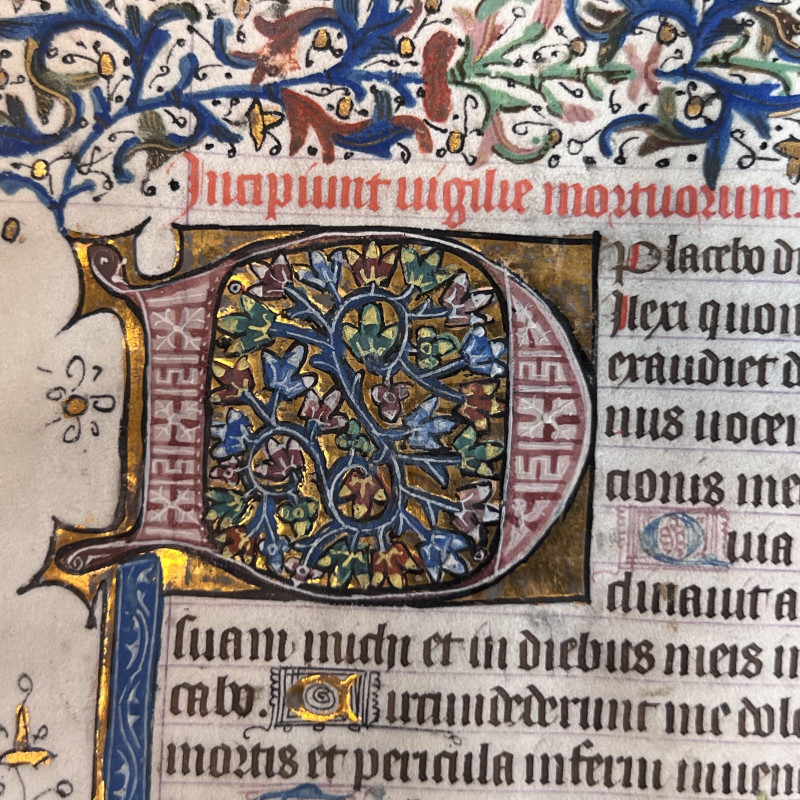 Incipiunt uigilie mortuorum.
D Placebo
ilexi quon
exaudiet
nus uocem
cionis me
Quia
clinauit a
suam michi et in diebus meis in
cabo. Circumdederunt me dolo
mortis et pericula inferni inuen